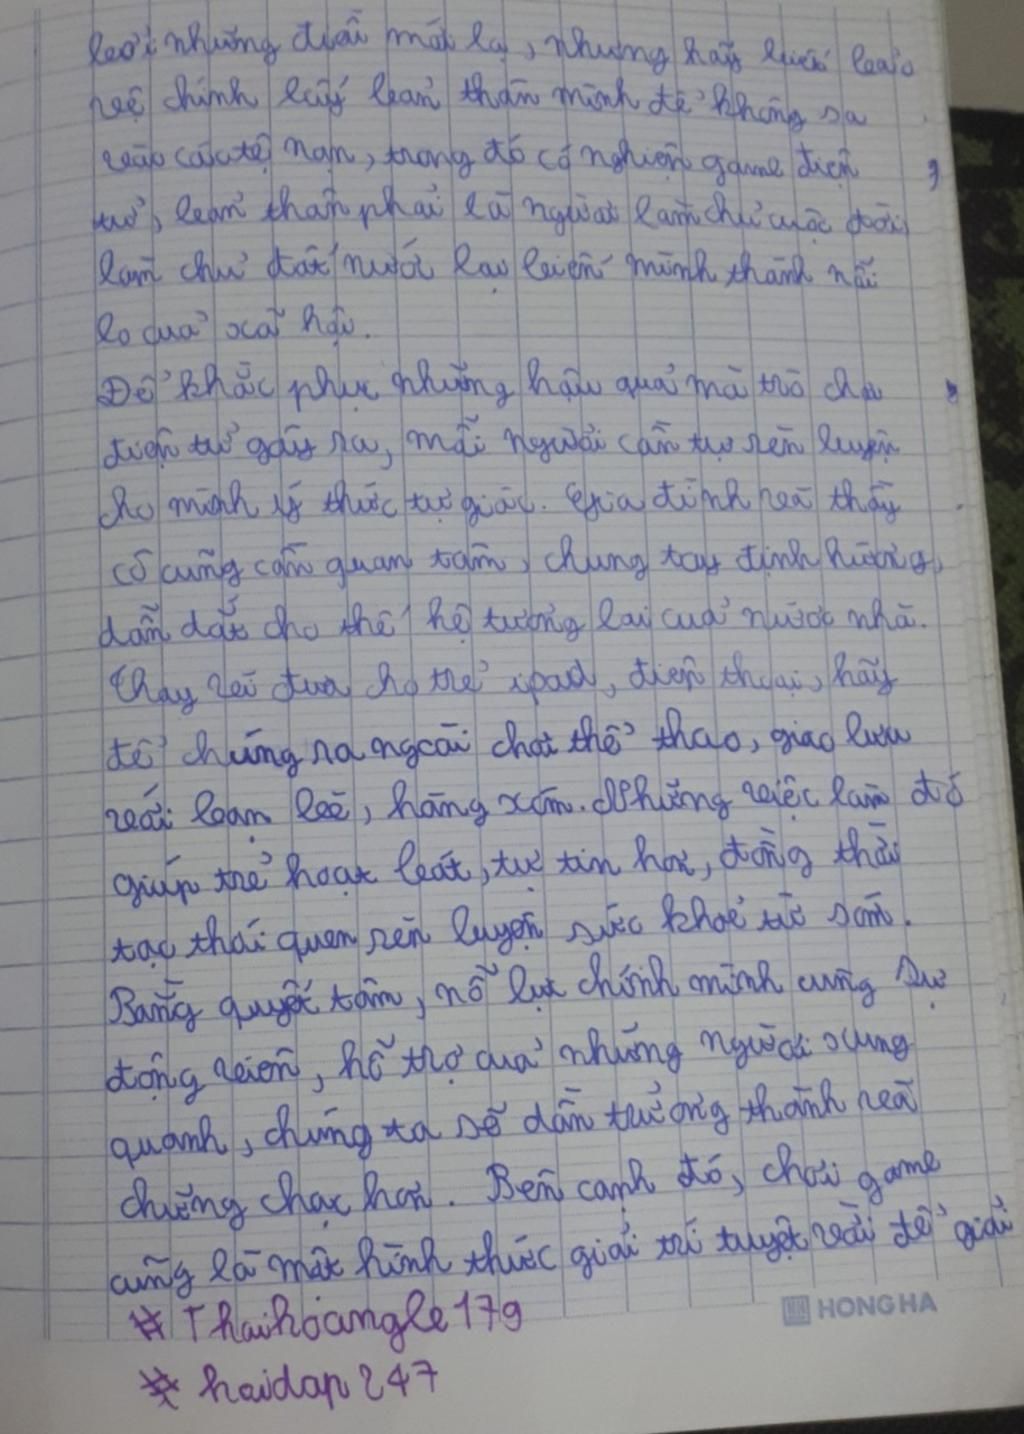 bởi những điều mới lạ, nhưng hãy luôn bảo
vệ chính lấy bản thân mình để không sa
vào các tệ nạn, trong đó có nghiện game điện
tử, bản thân phải là người làm chủ cuộc đời,
làm chủ đất nước lại biến mình thành nỗi
lo của xã hội.
Để khắc phục những hậu quả mà trò chơi
điện tử gây ra, mỗi người cần tự rèn luyện
cho mình ý thức tự giác. Gia đình và thầy
cô cũng cần quan tâm, chung tay định hướng,
dẫn dắt cho thế hệ tương lai của nước nhà.
Thay vì đưa cho trẻ ipad, điện thoại, hãy
để chúng ra ngoài chơi thể thao, giao lưu
với bạn bè, hàng xóm. Những việc làm đó
giúp trẻ hoạt bát, tự tin hơn, đồng thời
tạo thói quen rèn luyện sức khoẻ từ sớm.
Bằng quyết tâm, nỗ lực chính mình cùng sự
động viên, hỗ trợ của những người xung
quanh, chúng ta sẽ dần trưởng thành và
chững chạc hơn. Bên cạnh đó, chơi game
cũng là một hình thức giải trí tuyệt vời để giải
# Thaihoangle179
# hoidap247
HONG HA